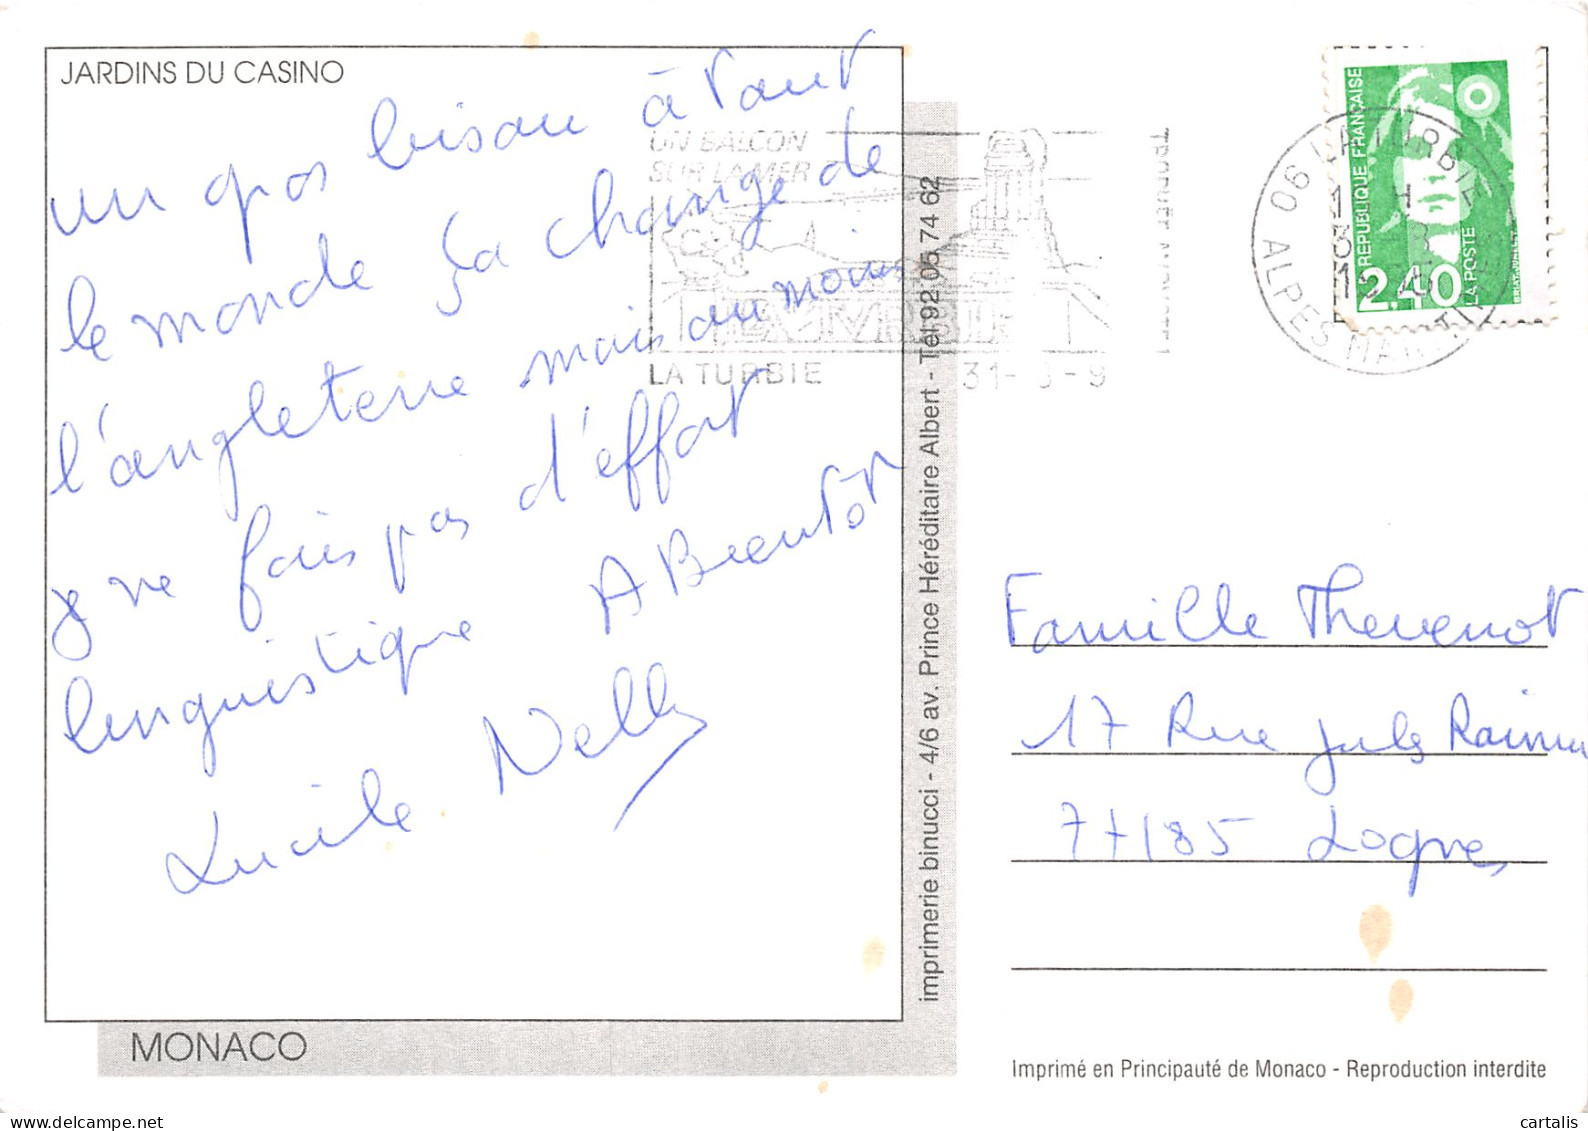 JARDINS DU CASINO
un gros bisou à tout
le monde ça change de
l'angleterre mais au moins
je ne fais pas d'effort
linguistique A Bientôt
Lucile Nelly
MONACO
imprimerie binucci - 4/6 av. Prince Héréditaire Albert - Tél 92 05 74 62
UN BALCON
SUR LA MER
LA TURBIE
31- -9
06 LA TURBIE
ALPES MARITIMES
RÉPUBLIQUE FRANÇAISE
2.40
LA POSTE
Famille Thevenot
17 Rue Jules Raimu
77185 Lognes
Imprimé en Principauté de Monaco - Reproduction interdite
cartalis